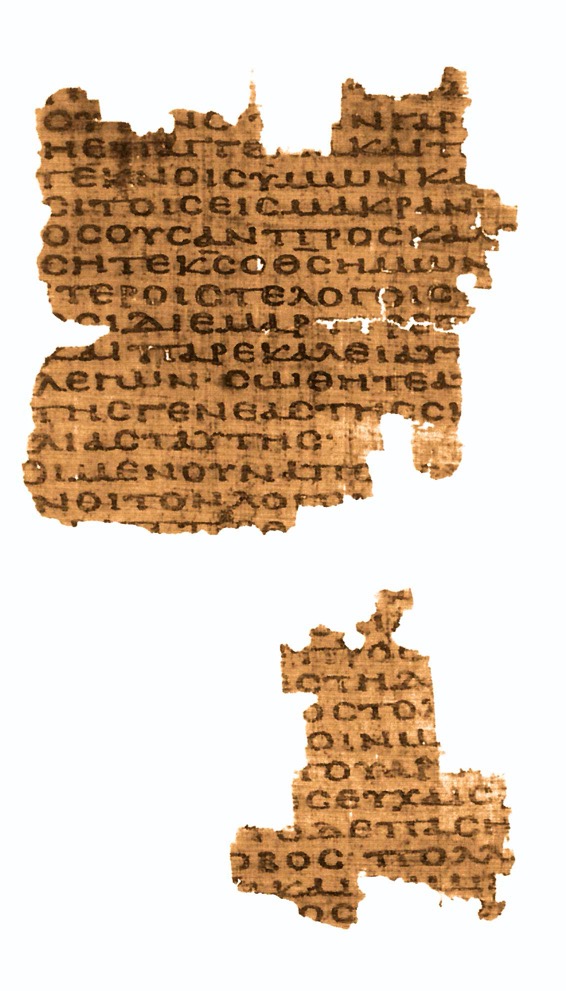 ΟΥ ΙϹ ΝΓΑΡ
ΗΕΠΑΓΓΕ ΚΑΙΤ
ΤΕΚΝΟΙϹΥΜΩΝΚΑ
ϹΙΤΟΙϹΕΙϹΜΑΚΡΑΝ
ΟϹΟΥϹΑΝΠΡΟϹΚΑ
ϹΗΤΕΚϹΟΘϹΗΜΩΝ
ΤΕΡΟΙϹΤΕΛΟΓΟΙϹ
ϹΙΔΙΕΜΑΡ
ΚΑΙΠΑΡΕΚΑΛΕΙΑΥΤ
ΛΕΓΩΝ· ϹΩΘΗΤΕΑ
ΤΗϹΓΕΝΕΑϹΤΗϹϹΚ
ΛΙΑϹΤΑΥΤΗϹ·
ΟΙΜΕΝΟΥΝΑΠΟ
ΝΟΙΤΟΝΛΟΓΟ
ΠΡΟϹ
ϹΤΗΔ
ΟϹΤΟΛ
ΟΙΝΩ
ΤΟΥΑΡ
ϹΕΥΧΑΙϹ
ΤΟΔΕΠΑϹΗ
ΟΒΟϹ ΠΟΛΛ
ΚΑΙ
ΟϹ